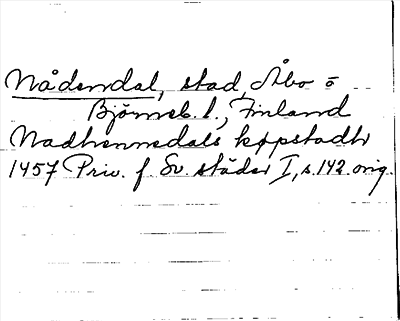 Nådendal, stad, Åbo o
Björneb. l., Finland
Nadhennedals køpstadh
1457 Priv. f. Sv. städer I, s. 142. orig.